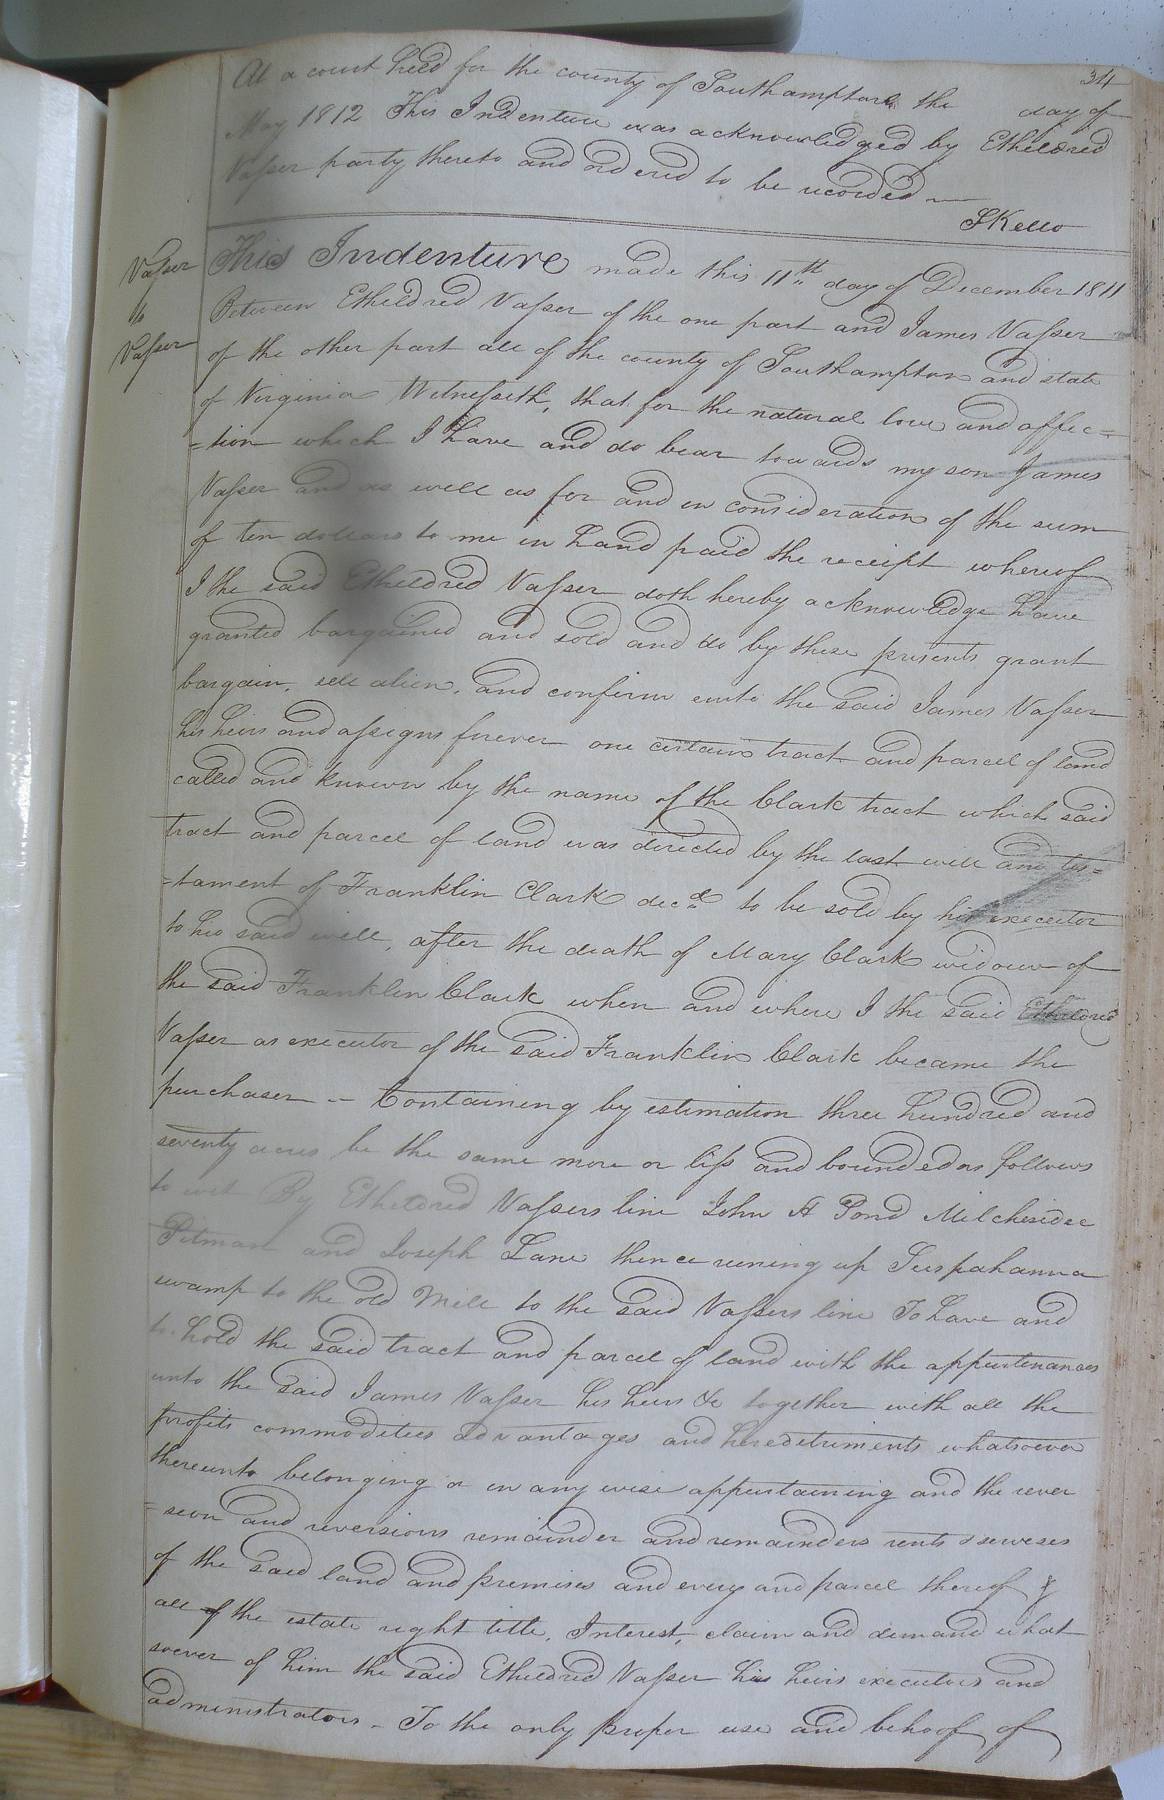 34
At a court held for the county of Southampton the day of
May 1812 This Indenture was acknowledged by Etheldred
Vasser party thereto and ordered to be recorded —
SKello
Vasser
to
Vasser
This Indenture made this 11th day of December 1811
Between Etheldred Vasser of the one part and James Vasser
of the other part all of the county of Southampton and state
of Virginia Witnesseth, that for the natural love and affec=
=tion which I have and do bear towards my son James
Vasser and as well as for and in consideration of the sum
of ten dollars to me in hand paid the receipt whereof
I the said Etheldred Vasser doth hereby acknowledge have
granted bargained and sold and do by these presents grant
bargain, sell alien, and confirm unto the said James Vasser
his heirs and assigns forever one certain tract and parcel of land
called and known by the name of the Clark tract which said
tract and parcel of land was directed by the last will and tes=
=tament of Franklin Clark decd to be sold by his executor
to his said will, after the death of Mary Clark widow of
the said Franklin Clark when and where I the said Etheldred
Vasser as executor of the said Franklin Clark became the
purchaser — Containing by estimation three hundred and
seventy acres be the same more or less and bounded as follows
to wit By Etheldred Vassers line John A Pond Milchesidec
Pitman and Joseph Lane thence runing up Suspahanna
swamp to the old Mill to the said Vassers line To have and
to hold the said tract and parcel of land with the appurtenances
unto the said James Vasser his heirs &c together with all the
profits commodities advantages and hereditriments whatsoever
thereunto belonging or in any wise appurtaining and the rever
=seon and reversions remainder and remainders rents & serveses
of the said land and premises and every and parcel thereof &
all of the estate right title, Interest, claim and demand what
soever of him the said Etheldred Vasser his heirs executors and
administrators — To the only proper use and behoof of